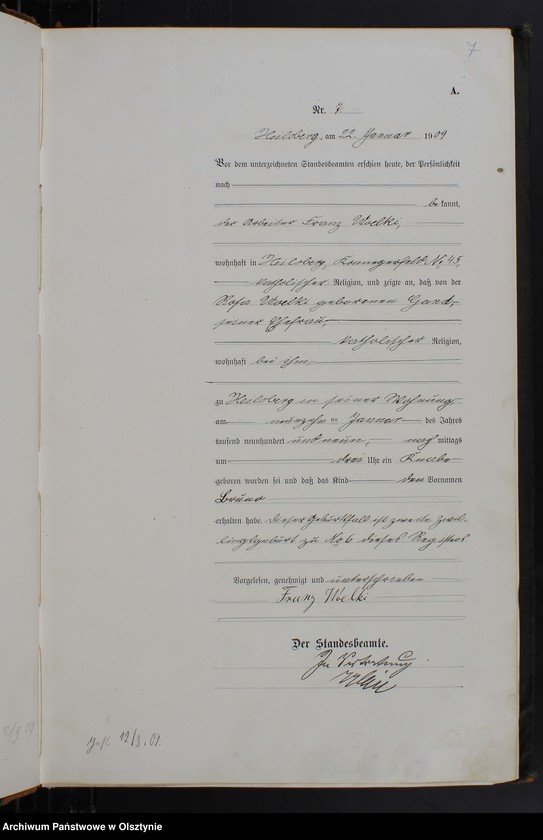 7
A.
Nr. 7
Heilsberg, am 22. Januar 1909
Vor dem unterzeichneten Standesbeamten erschien heute, der Persönlichkeit
nach
be kannt,
der Arbeiter Franz Woelki,
wohnhaft in Heilsberg, Konnegerfeld No. 45,
katholischer Religion, und zeigte an, daß von der
Rosa Woelki geborenen Gand,
seiner Ehefrau,
katholischer Religion,
wohnhaft bei ihm,
zu Heilsberg in seiner Wohnung
am neunzehn ten Januar des Jahres
tausend neunhundert und neun, nach mittags
um drei Uhr ein Knabe
geboren worden sei und daß das Kind den Vornamen
Bruno
erhalten habe. Dieser Geburtsfall ist zweite Zwil-
lingsgeburt zu No 6 dieses Registers
Vorgelesen, genehmigt und unterschrieben
Franz Woelki
Der Standesbeamte.
In Vertretung
12/3. 09.
Archiwum Państwowe w Olsztynie